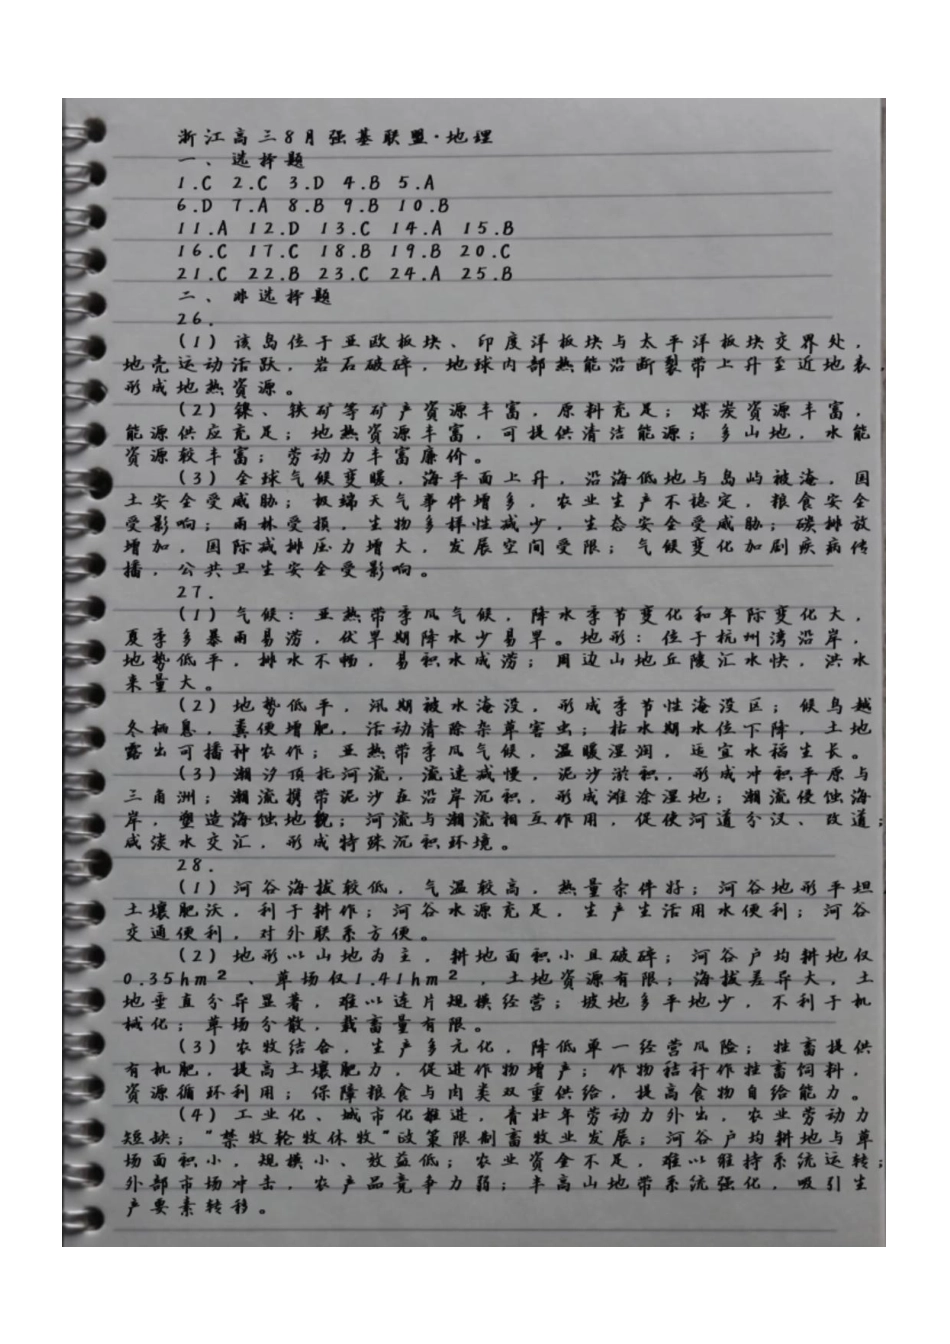 浙江高三8月强基联盟·地理
一、选择题
1.C 2.C 3.D 4.B 5.A
6.D 7.A 8.B 9.B 10.B
11.A 12.D 13.C 14.A 15.B
16.C 17.C 18.B 19.B 20.C
21.C 22.B 23.C 24.A 25.B
二、非选择题
26.
(1)该岛位于亚欧板块、印度洋板块与太平洋板块交界处，
地壳运动活跃，岩石破碎，地球内部热能沿断裂带上升至近地表，
形成地热资源。
(2)镍、铁矿等矿产资源丰富，原料充足；煤炭资源丰富，
能源供应充足；地热资源丰富，可提供清洁能源；多山地，水能
资源较丰富；劳动力丰富廉价。
(3)全球气候变暖，海平面上升，沿海低地与岛屿被淹，国
土安全受威胁；极端天气事件增多，农业生产不稳定，粮食安全
受影响；雨林受损，生物多样性减少，生态安全受威胁；碳排放
增加，国际减排压力增大，发展空间受限；气候变化加剧疾病传
播，公共卫生安全受影响。
27.
(1)气候：亚热带季风气候，降水季节变化和年际变化大，
夏季多暴雨易涝，伏旱期降水少易旱。地形：位于杭州湾沿岸，
地势低平，排水不畅，易积水成涝；周边山地丘陵汇水快，洪水
来量大。
(2)地势低平，汛期被水淹没，形成季节性淹没区；候鸟越
冬栖息，粪便增肥，活动清除杂草害虫；枯水期水位下降，土地
露出可播种农作；亚热带季风气候，温暖湿润，适宜水稻生长。
(3)潮汐顶托河流，流速减慢，泥沙淤积，形成冲积平原与
三角洲；潮流携带泥沙在沿岸沉积，形成滩涂湿地；潮流侵蚀海
岸，塑造海蚀地貌；河流与潮流相互作用，促使河道分汊、改道；
咸淡水交汇，形成特殊沉积环境。
28.
(1)河谷海拔较低，气温较高，热量条件好；河谷地形平坦，
土壤肥沃，利于耕作；河谷水源充足，生产生活用水便利；河谷
交通便利，对外联系方便。
(2)地形以山地为主，耕地面积小且破碎；河谷户均耕地仅
0.35hm²、草场仅1.41hm²，土地资源有限；海拔差异大，土
地垂直分异显著，难以连片规模经营；坡地多平地少，不利于机
械化；草场分散，载畜量有限。
(3)农牧结合，生产多元化，降低单一经营风险；牲畜提供
有机肥，提高土壤肥力，促进作物增产；作物秸秆作牲畜饲料，
资源循环利用；保障粮食与肉类双重供给，提高食物自给能力。
(4)工业化、城市化推进，青壮年劳动力外出，农业劳动力
短缺；“禁牧轮牧休牧”政策限制畜牧业发展；河谷户均耕地与草
场面积小，规模小、效益低；农业资金不足，难以维持系统运转；
外部市场冲击，农产品竞争力弱；半高山地带系统强化，吸引生
产要素转移。